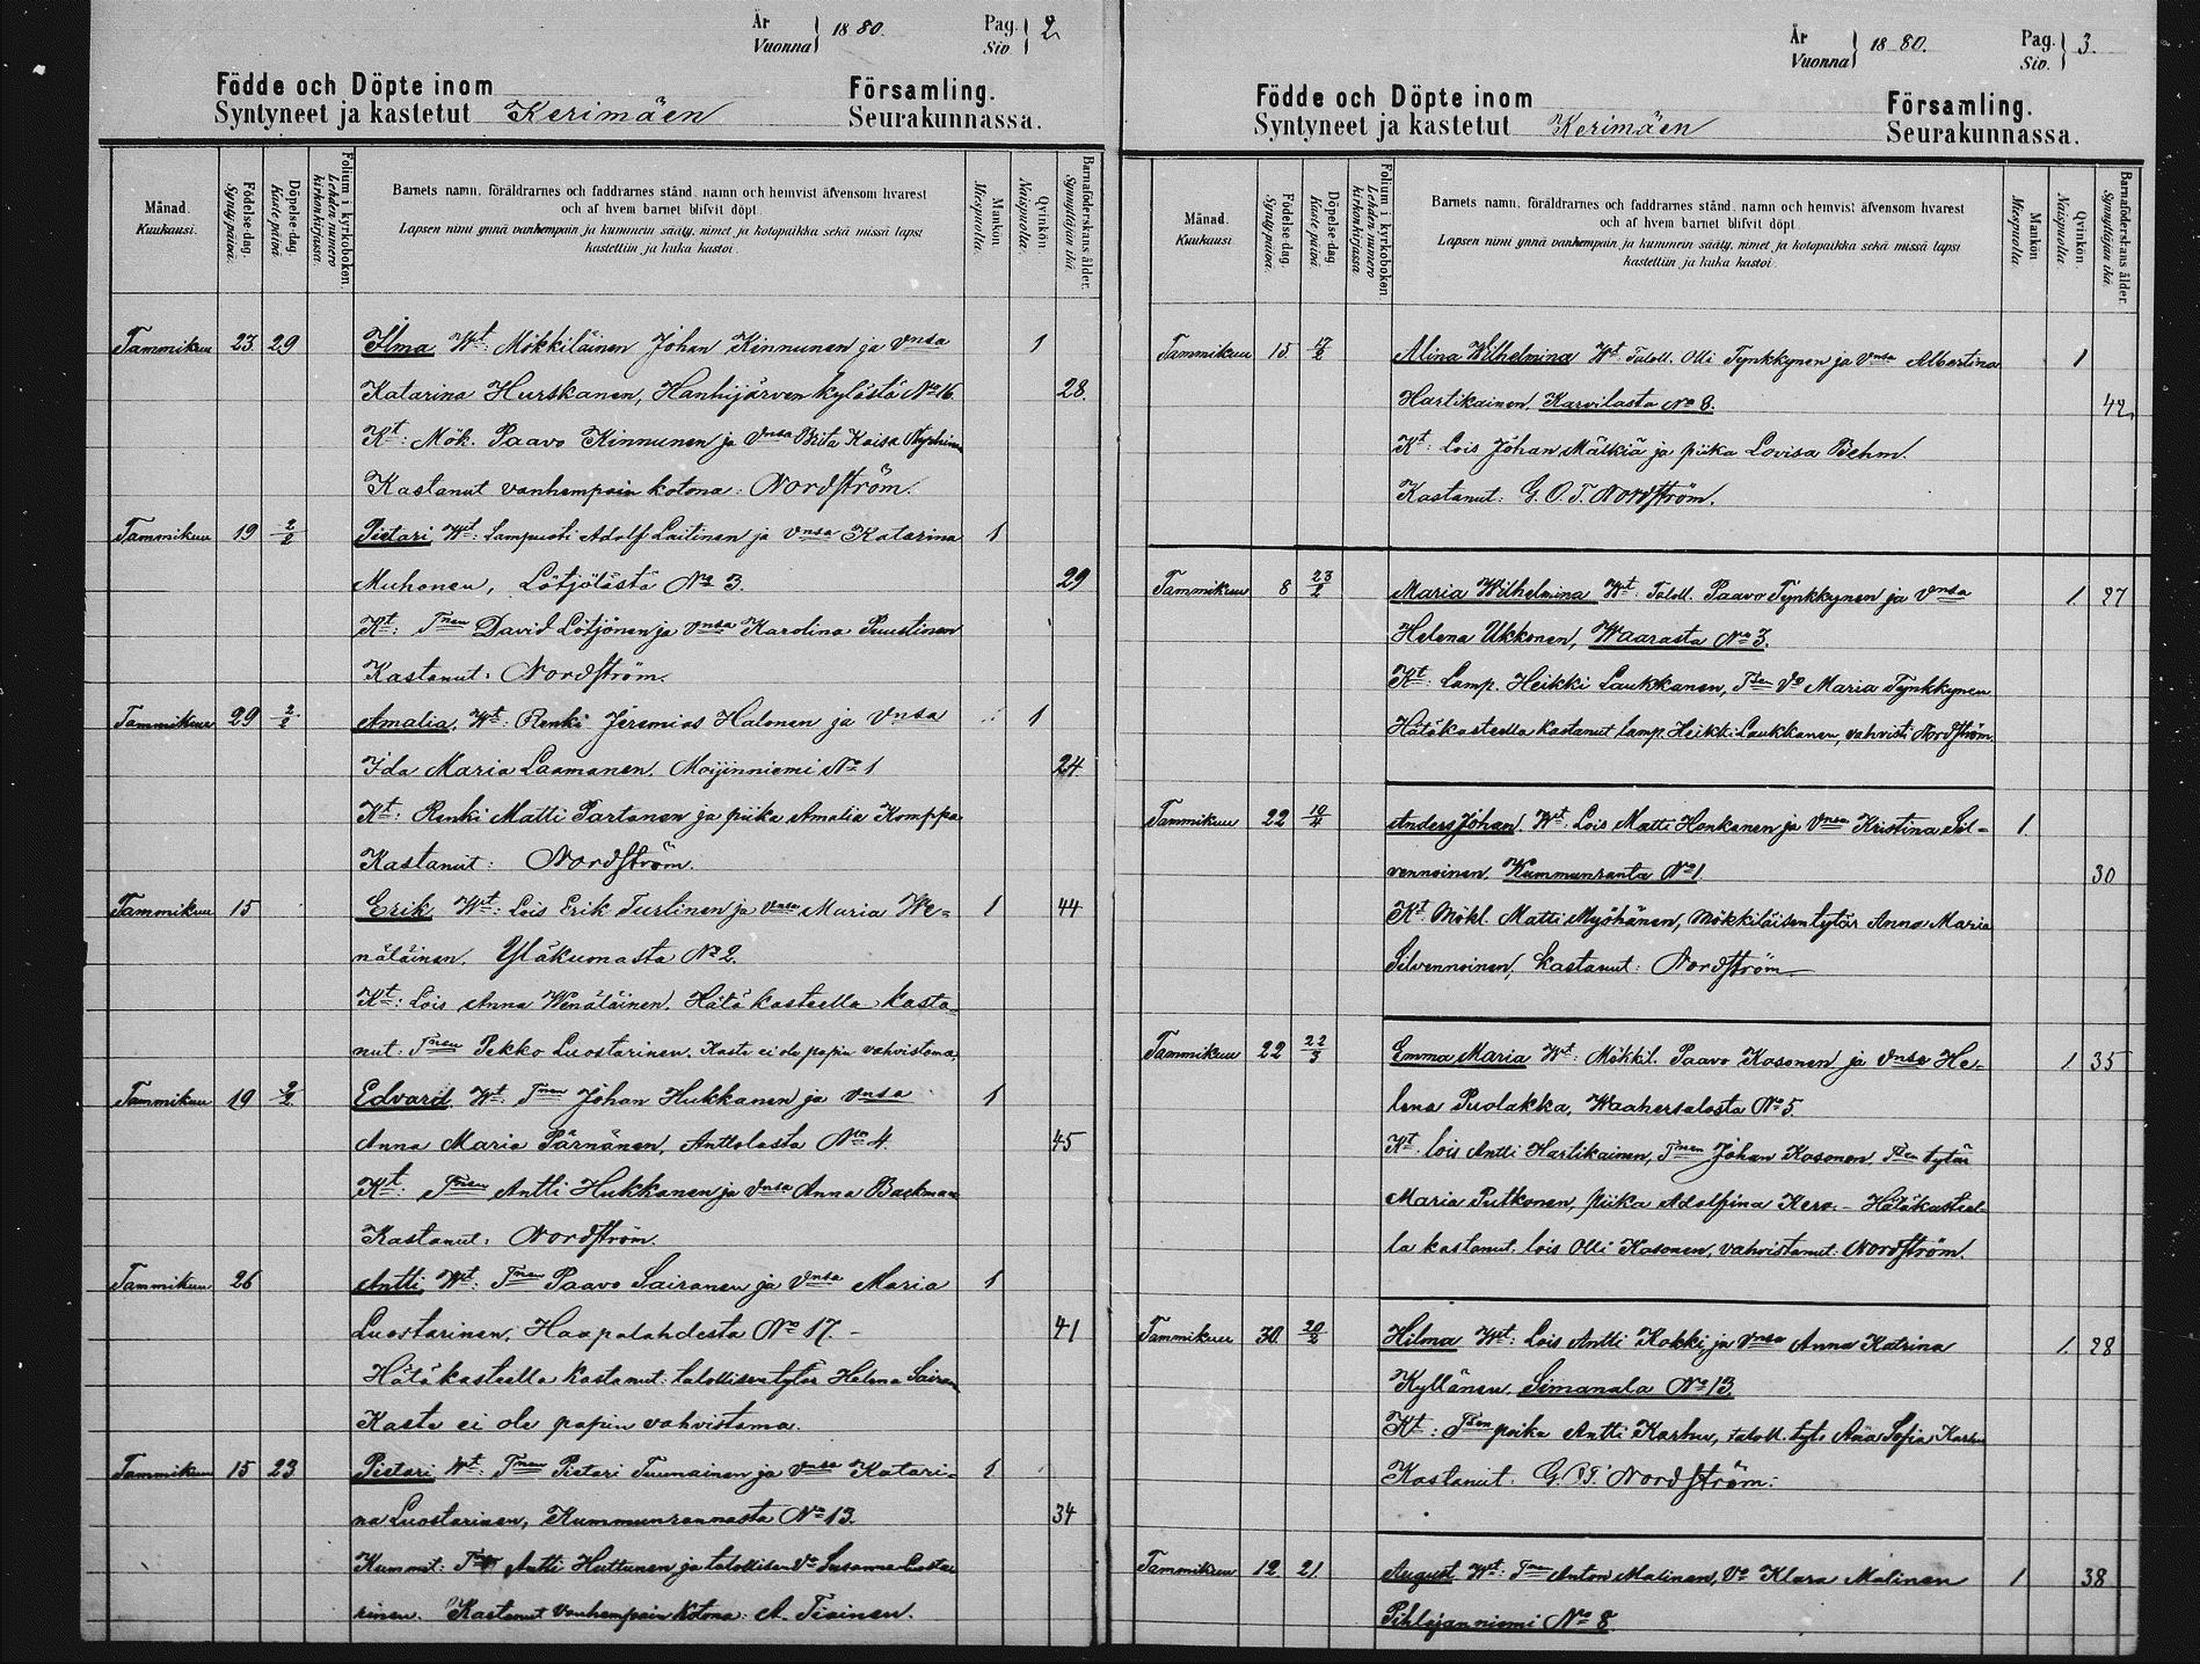 År
Vuonna } 1880.
Pag.
Siv. } 2
Födde och Döpte inom Församling.
Syntyneet ja kastetut Kerimäen Seurakunnassa.
Månad.
Kuukausi.
Födelse-dag.
Synty päivä.
Döpelse-dag.
Kaste päivä.
Folium i kyrkoboken.
Lehden numero kirkonkirjassa.
Barnets namn, föräldrarnes och faddrarnes stånd, namn och hemvist äfvensom hvarest
och af hvem barnet blifvit döpt.
Lapsen nimi ynnä vanhempain ja kummein sääty, nimet ja kotopaikka sekä missä lapsi
kastettiin ja kuka kastoi.
Mankön.
Miespuolta.
Qvinkön.
Naispuolta.
Barnaföderskans ålder.
Synnyttäjän ikä.
Tammikuu 23 29 Ilma Wt: Mökkiläinen Johan Kinnunen ja Vnsa 1
Katarina Hurskanen, Hanhijärven kylästä No 16. 28.
Kt: Mök. Paavo Kinnunen ja Vnsa Brita Kaisa
Kastanut vanhempain kotona: Nordström.
Tammikuu 19 2/2 Pietari Wt: Lampuoti Adolf Laitinen ja Vnsa Katarina 1
Muhonen, Lötjölästä No 3. 29
Kt: Tnen David Lötjönen ja Vnsa Karolina Puustinen
Kastanut: Nordström.
Tammikuu 29 2/2 Amalia, Wt: Renki Jeremias Halonen ja Vnsa 1
Ida Maria Laamanen. Moijinniemi No 1 24
Kt: Renki Matti Partanen ja piika Amalia Komppa
Kastanut: Nordström.
Tammikuu 15 Erik Wt: Lois Erik Turtinen ja Vnsa Maria We= 1 44
näläinen. Yläkuonasta No 2.
Kt: Lois Anna Wenäläinen. Hätä kasteella kasta=
nut: Tnen Pekko Luostarinen. Kaste ei ole papin vahvistama.
Tammikuu 19 2/2 Edvard Wt: Tnen Johan Hukkanen ja Vnsa 1
Anna Maria Pärnänen, Anttolasta No 4. 45
Kt: Tnen Antti Hukkanen ja Vnsa Anna Backman
Kastanut: Nordström.
Tammikuu 26 Antti Wt: Tnen Paavo Sairanen ja Vnsa Maria 1
Luostarinen. Haapalahdesta No 17. - 41
Hätä kasteella kastanut: talollisen tytär Helena Sairan
Kaste ei ole papin vahvistama.
Tammikuu 15 23 Pietari Wt: Tnen Pietari Tuunainen ja Vnsa Katari= 1
na Luostarinen, Kummunrannasta No 13. 34
Kummit: Antti Huttunen ja talollisen Vo Susanna Luosta
rinen. Kastanut vanhempain kotona: A. Tiainen.
År
Vuonna } 1880.
Pag.
Siv. } 3.
Födde och Döpte inom Församling.
Syntyneet ja kastetut Kerimäen Seurakunnassa.
Månad.
Kuukausi.
Födelse-dag.
Synty päivä.
Döpelse-dag.
Kaste päivä.
Folium i kyrkoboken.
Lehden numero kirkonkirjassa.
Barnets namn, föräldrarnes och faddrarnes stånd, namn och hemvist äfvensom hvarest
och af hvem barnet blifvit döpt.
Lapsen nimi ynnä vanhempain ja kummein sääty, nimet ja kotopaikka sekä missä lapsi
kastettiin ja kuka kastoi.
Mankön.
Miespuolta.
Qvinkön.
Naispuolta.
Barnaföderskans ålder.
Synnyttäjän ikä.
Tammikuu 15. 17/2 Alina Wilhelmina Wt Taloll. Olli Tynkkynen ja Vnsa Albertina 1
Hartikainen. Karvilasta No 8. 42
Kt: Lois Johan Mälkiä ja piika Lovisa Behm.
Kastanut: G. O. T. Nordström.
Tammikuu 8 23/2 Maria Wilhelmina Wt: Taloll. Paavo Tynkkynen ja Vnsa 1. 27
Helena Ukkonen, Waarasta No 3.
Kt: Lamp. Heikki Laukkanen, Tsen Vo Maria Tynkkynen
Hätäkasteella kastanut lamp. Heikki Laukkanen, vahvisti Nordström.
Tammikuu 22 10/4 Anders Johan. Wt: Lois Matti Honkanen ja Vnsa Kristina Sil= 1.
vennoinen. Kummunranta No 1 30
Kt. Mökl. Matti Myöhänen, Mökkiläisen tytär Anna Maria
Silvennoinen, kastanut: Nordström
Tammikuu 22 22/3 Emma Maria Wt: Mökkil. Paavo Kosonen ja Vnsa He= 1. 35
lena Puolakka, Waahersalosta No 5
Kt. lois Antti Hartikainen, Tnen Johan Kosonen, Tsen tytär
Maria Putkonen, piika Adolfina Kero. - Hätäkasteel=
la kastanut: lois Olli Kosonen, vahvistanut: Nordström.
Tammikuu 30. 20/2 Hilma Wt: Lois Antti Kokki ja Vnsa Anna Katrina 1. 28
Kyllänen. Simanala No 13.
Kt: Tsen poika Antti Karhu, taloll. tyt. Sofia Karhu
Kastanut: G. O. T. Nordström:
Tammikuu 12 21 August Wt: Tnen Anton Malinen, Vo Klara Malinen 1 38
Pihlajanniemi No 8